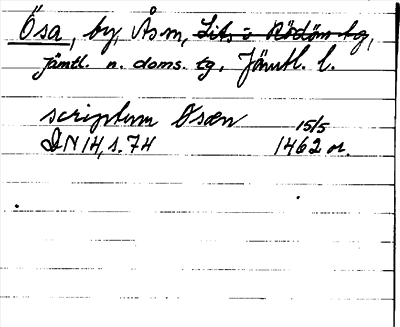 Ösa, by, Ås sn, Lits o Rödöns tg,
Jämtl. n. doms. tg, Jämtl. l.
scriptum Osæn 15/5
DN 14, s. 74 1462 or.